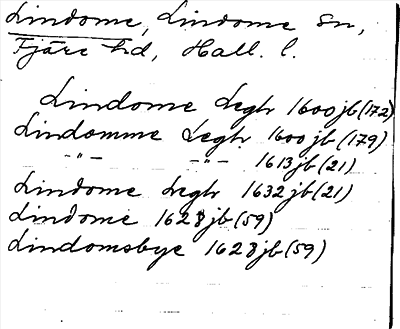 Lindome, Lindome sn,
Fjäre hd, Hall. l.
Lindome Legh 1600 jb (172)
Lindomme Legh 1600 jb (179)
-"- -"- 1613 jb (21)
Lindome Legh 1632 jb (21)
Lindome 1628 jb (59)
Lindomsbye 1628 jb (59)